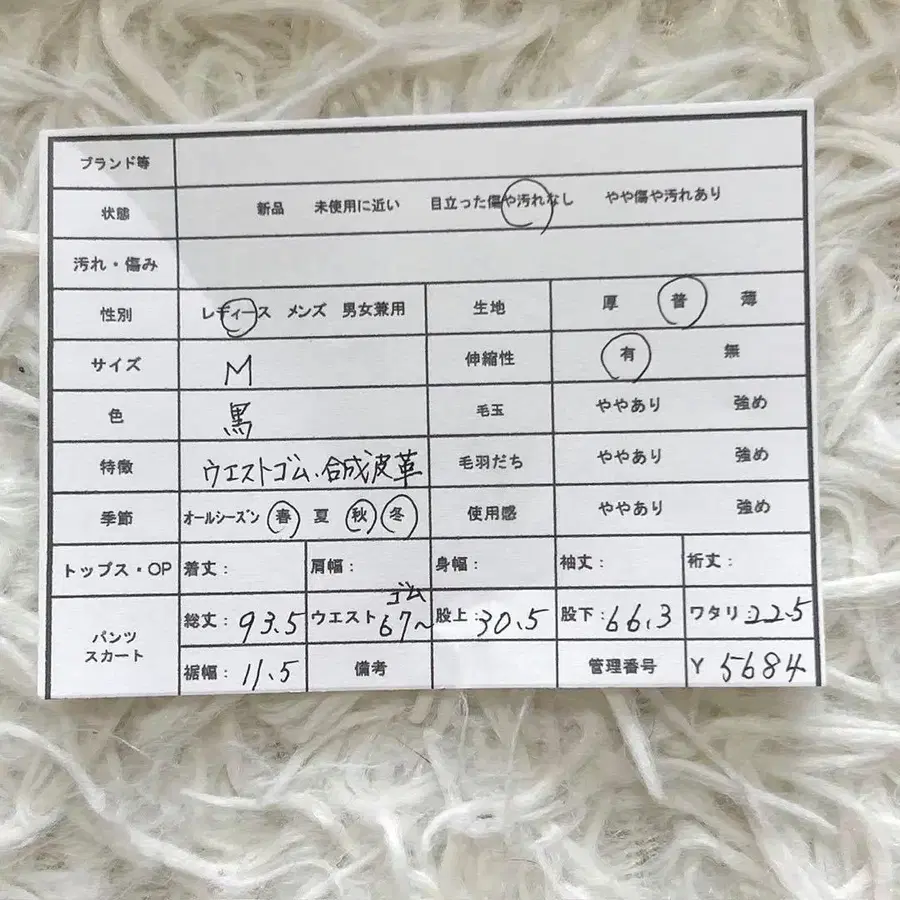 ブランド等
状態 新品 未使用に近い 目立った傷や汚れなし やや傷や汚れあり
汚れ・傷み
性別 レディース メンズ 男女兼用 生地 厚 普 薄
サイズ M 伸縮性 有 無
色 黒 毛玉 ややあり 強め
特徴 ウエストゴム、合成皮革 毛羽だち ややあり 強め
季節 オールシーズン 春 夏 秋 冬 使用感 ややあり 強め
トップス・OP 着丈: 肩幅: 身幅: 袖丈: 裄丈:
パンツ スカート 総丈: 93.5 ウエスト ゴム 67~ 股上: 30.5 股下: 66.3 ワタリ: 22.5
裾幅: 11.5 備考 管理番号 Y 5684